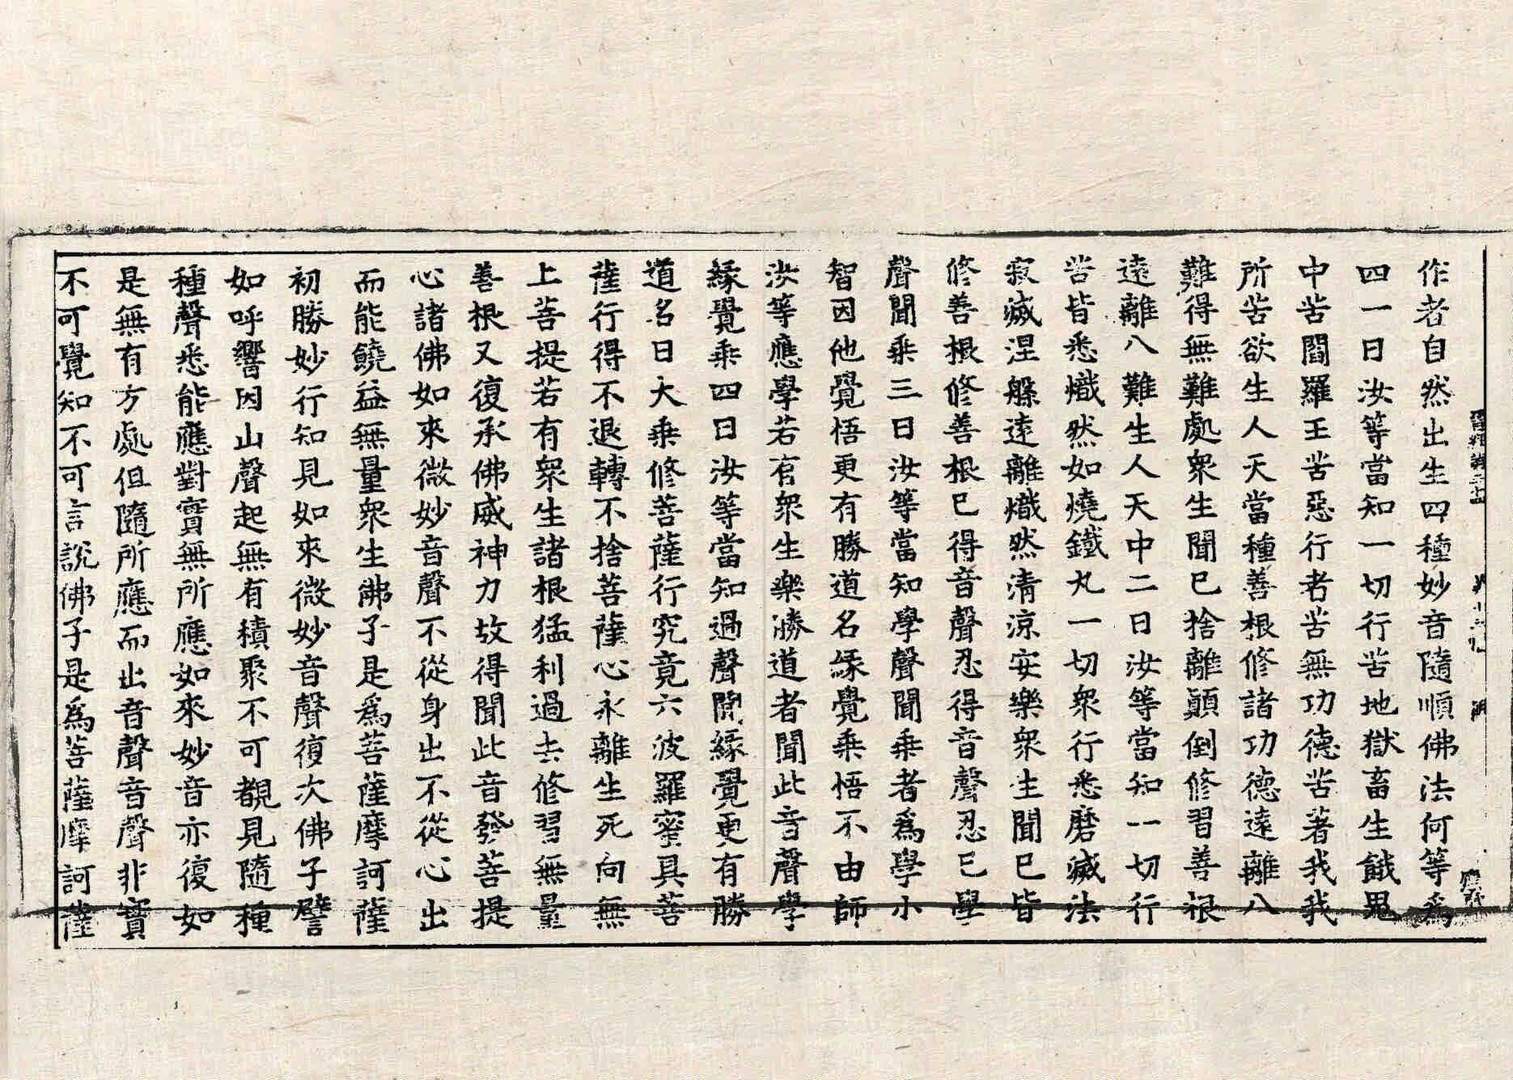 作者自然出生四種妙音隨順佛法何等為
四一曰汝等當知一切行苦地獄畜生餓鬼
中苦閻羅王苦惡行者苦無功德苦著我我
所苦欲生人天當種善根修諸功德遠離八
難得無難處眾生聞已捨離顛倒修習善根
遠離八難生人天中二曰汝等當知一切行
苦皆悉熾然如燒鐵丸一切眾行悉磨滅法
寂滅涅槃遠離熾然清涼安樂眾生聞已皆
修善根修善根已得音聲忍得音聲忍已學
聲聞乘三曰汝等當知學聲聞乘者為學小
智因他覺悟更有勝道名緣覺乘悟不由師
汝等應學若有眾生樂勝道者聞此音聲學
緣覺乘四曰汝等當知過聲聞緣覺更有勝
道名曰大乘修菩薩行究竟六波羅蜜具菩
薩行得不退轉不捨菩薩心永離生死向無
上菩提若有眾生諸根猛利過去修習無量
善根又復承佛威神力故得聞此音發菩提
心諸佛如來微妙音聲不從身出不從心出
而能饒益無量眾生佛子是為菩薩摩訶薩
初勝妙行知見如來微妙音聲復次佛子譬
如呼響因山聲起無有積聚不可覩見隨種
種聲悉能應對實無所應如來妙音亦復如
是無有方處但隨所應而出音聲音聲非實
不可覺知不可言說佛子是為菩薩摩訶薩